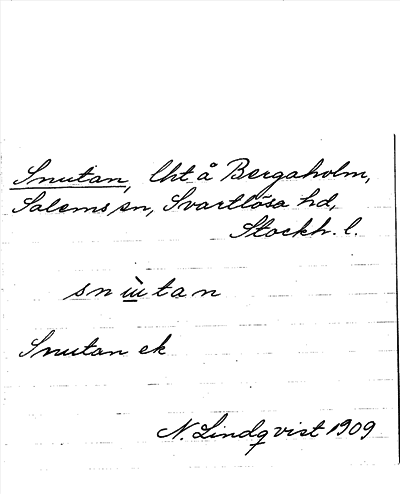 Snutan, lht å Bergaholm,
Salems sn, Svartlösa hd,
Stockh. l.
snùtan
Snutan ek
N. Lindqvist 1909